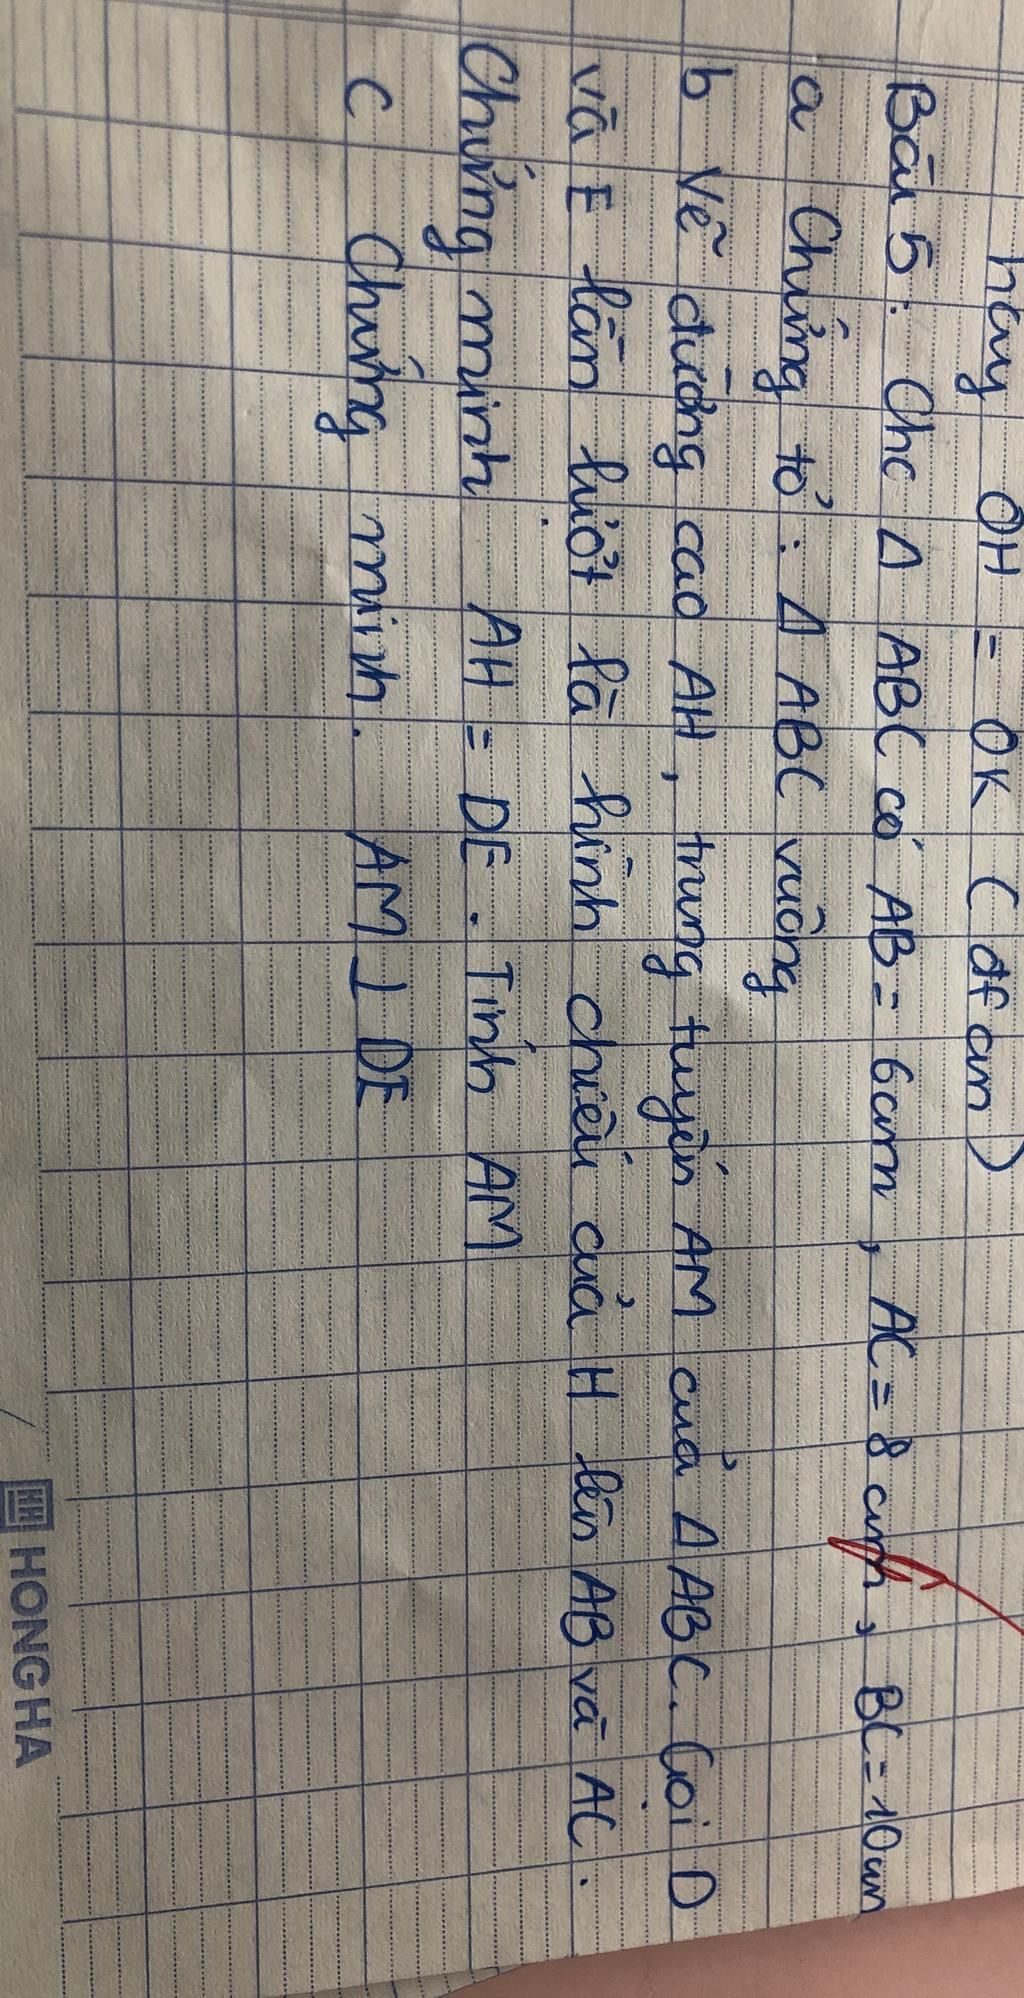 hay OH = OK (đfcm)
Bài 5: Cho Δ ABC có AB = 6cm, AC = 8cm, BC = 10cm
a Chứng tỏ: Δ ABC vuông
b Vẽ đường cao AH, trung tuyến AM của Δ ABC. Gọi D
và E lần lượt là hình chiếu của H lên AB và AC.
Chứng minh AH = DE. Tính AM
c Chứng minh. AM ⊥ DE
HONG HA